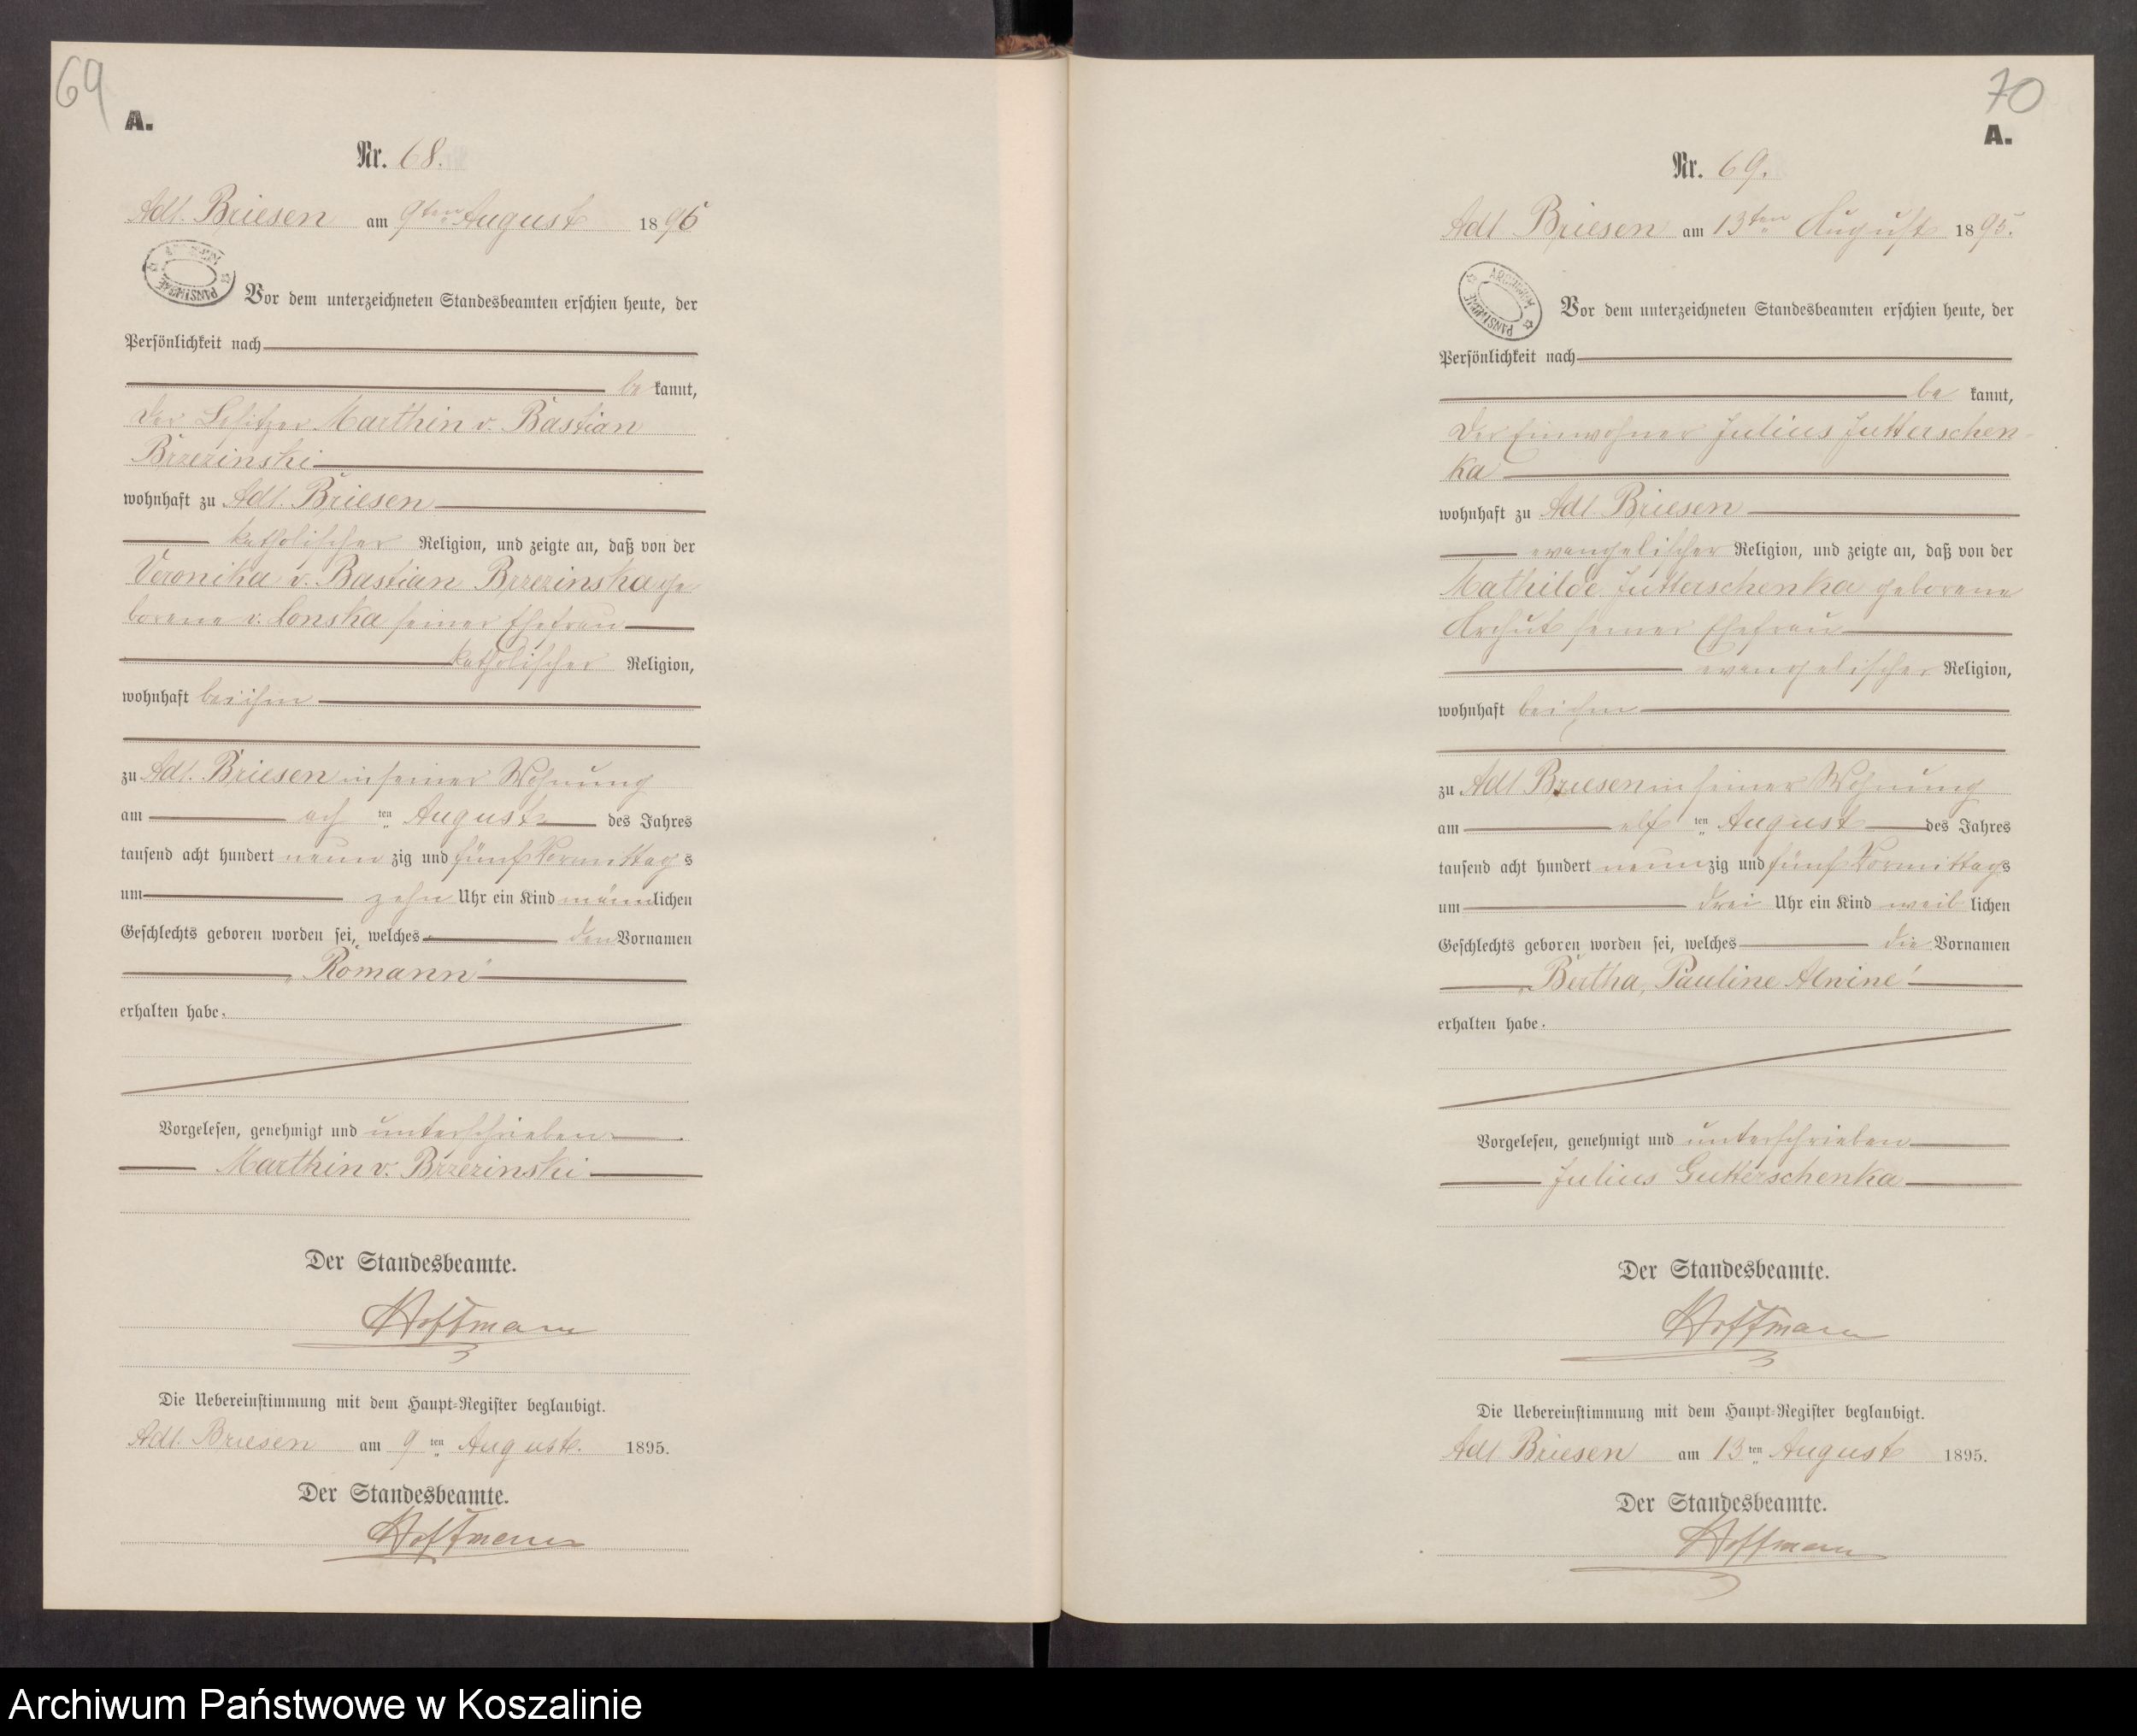 69
A.
Nr. 68.
Adl. Briesen am 9ten August 1896
ARCHIWUM PAŃSTWOWE
Vor dem unterzeichneten Standesbeamten erschien heute, der
Persönlichkeit nach
be kannt,
der Besitzer Marthin v. Bastian
Brzezinski
wohnhaft zu Adl. Briesen
katholischer Religion, und zeigte an, daß von der
Veronika v. Bastian Brzezinska ge
borene v. Lonska seiner Ehefrau
katholischer Religion,
wohnhaft bei ihm
zu Adl. Briesen in seiner Wohnung
am ach ten August des Jahres
tausend acht hundert neun zig und fünf Vormittag s
um zehn Uhr ein Kind männ lichen
Geschlechts geboren worden sei, welches den Vornamen
„Romann“
erhalten habe.
Vorgelesen, genehmigt und unterschrieben
Marthin v. Brzezinski
Der Standesbeamte.
Hoffmann
Die Uebereinstimmung mit dem Haupt-Register beglaubigt.
Adl. Briesen am 9 ten August. 1895.
Der Standesbeamte.
Hoffmann
70
A.
Nr. 69.
Adl Briesen am 13ten August 1895.
ARCHIWUM PAŃSTWOWE
Vor dem unterzeichneten Standesbeamten erschien heute, der
Persönlichkeit nach
be kannt,
der Einwohner Julius Jutterschen-
ka
wohnhaft zu Adl Briesen
evangelischer Religion, und zeigte an, daß von der
Mathilde Jutterschenka geborene
Archut seiner Ehefrau
evangelischer Religion,
wohnhaft bei ihm
zu Adl Briesen in seiner Wohnung
am elf ten August des Jahres
tausend acht hundert neun zig und fünf Vormittag s
um drei Uhr ein Kind weib lichen
Geschlechts geboren worden sei, welches die Vornamen
„Bertha, Pauline Alwine“
erhalten habe.
Vorgelesen, genehmigt und unterschrieben
Julius Gutterschenka
Der Standesbeamte.
Hoffmann
Die Uebereinstimmung mit dem Haupt-Register beglaubigt.
Adl Briesen am 13 ten August 1895.
Der Standesbeamte.
Hoffmann
Archiwum Państwowe w Koszalinie